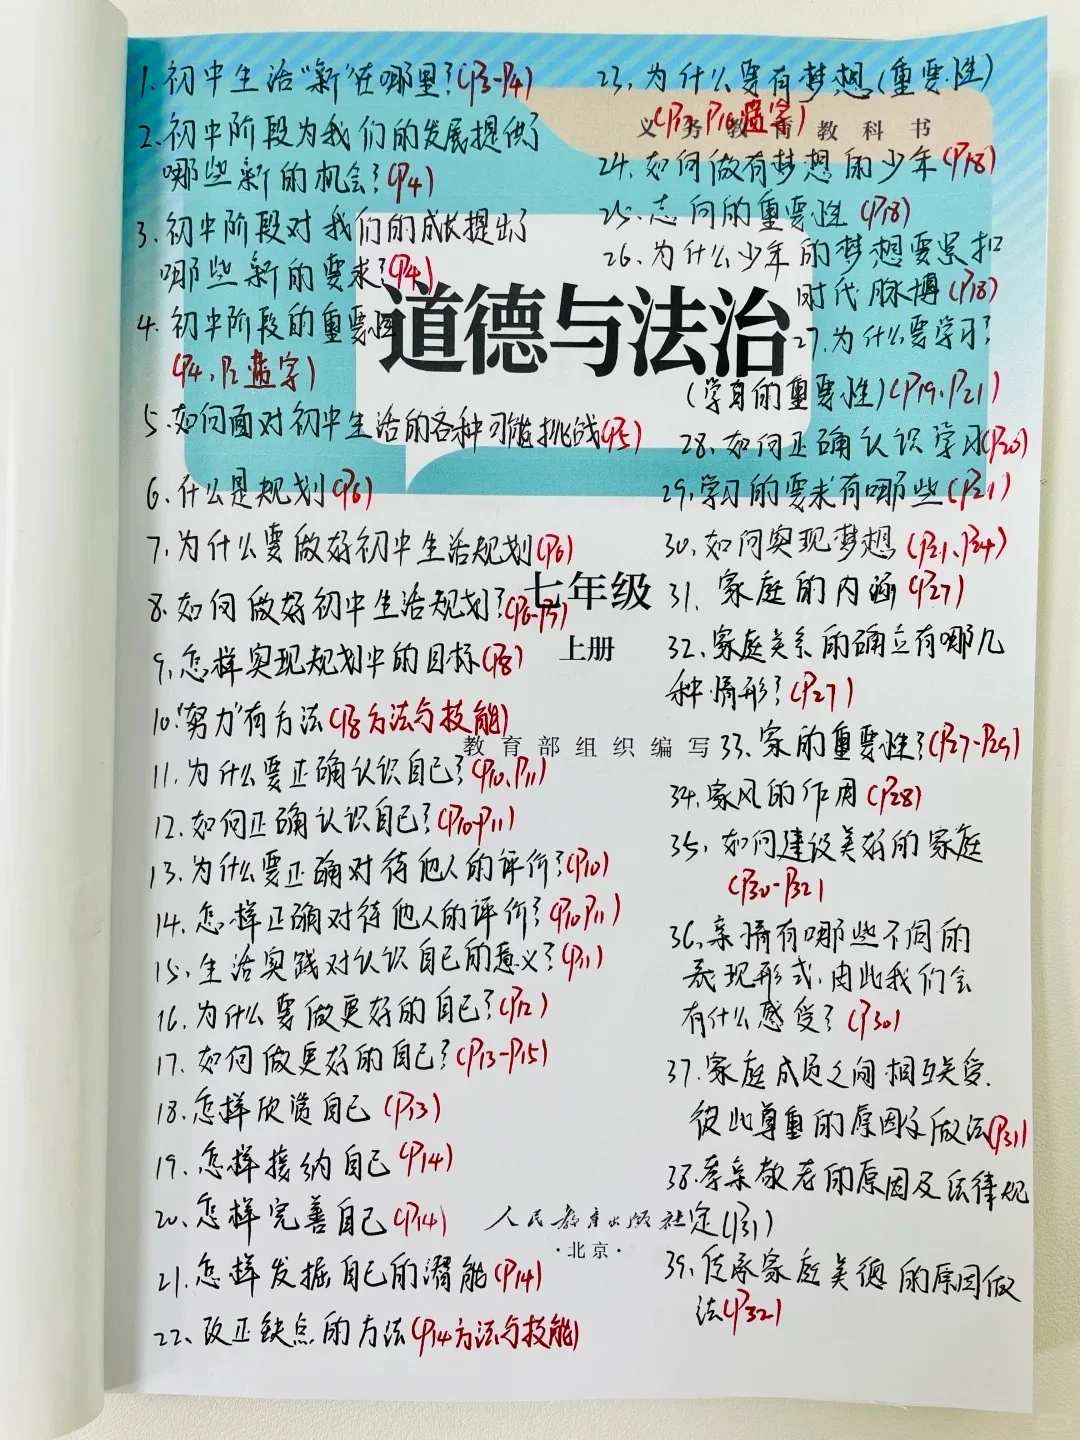 1.初中生活“新”在哪里?(P3-P4)
2.初中阶段为我们的发展提供了
哪些新的机会?(P4)
3.初中阶段对我们的成长提出了
哪些新的要求?(P4)
4.初中阶段的重要性
(P4,P2蓝字)
5.如何面对初中生活的各种可能挑战(P5)
6.什么是规划(P6)
7.为什么要做好初中生活规划(P6)
8.如何做好初中生活规划?(P6-P7)
9.怎样实现规划中的目标(P8)
10.“努力”有方法(P8方法与技能)
11.为什么要正确认识自己?(P10、P11)
12.如何正确认识自己?(P10-P11)
13.为什么要正确对待他人的评价?(P10)
14.怎样正确对待他人的评价?(P10P11)
15.生活实践对认识自己的意义?(P11)
16.为什么要做更好的自己?(P12)
17.如何做更好的自己?(P13-P15)
18.怎样欣赏自己(P13)
19.怎样接纳自己(P14)
20.怎样完善自己(P14)
21.怎样发掘自己的潜能(P14)
22、改正缺点的方法(P14方法与技能)
23,为什么要有梦想(重要性)
(P17,P16蓝字)
义务教育教科书
24.如何做有梦想的少年(P18)
25.志向的重要性(P18)
26.为什么少年的梦想要紧扣
时代脉搏(P18)
道德与法治
27.为什么要学习?
(学习的重要性)(P19、P21)
28.如何正确认识学习(P20)
29,学习的要求有哪些(P21)
30.如何实现梦想(P21、P24)
七年级
上册
31.家庭的内涵(P27)
32.家庭关系的确立有哪几
种情形?(P27)
教育部组织编写
33.家的重要性?(P27-P29)
34.家风的作用(P28)
35,如何建设美好的家庭
(P30-P32)
36,亲情有哪些不同的
表现形式,由此我们会
有什么感受?(P30)
37.家庭成员之间相互关爱.
彼此尊重的原因及做法(P31)
38.孝亲敬老的原因及法律规
定(P31)
人民教育出版社
·北京·
39.传承家庭美德的原因做
法(P32)